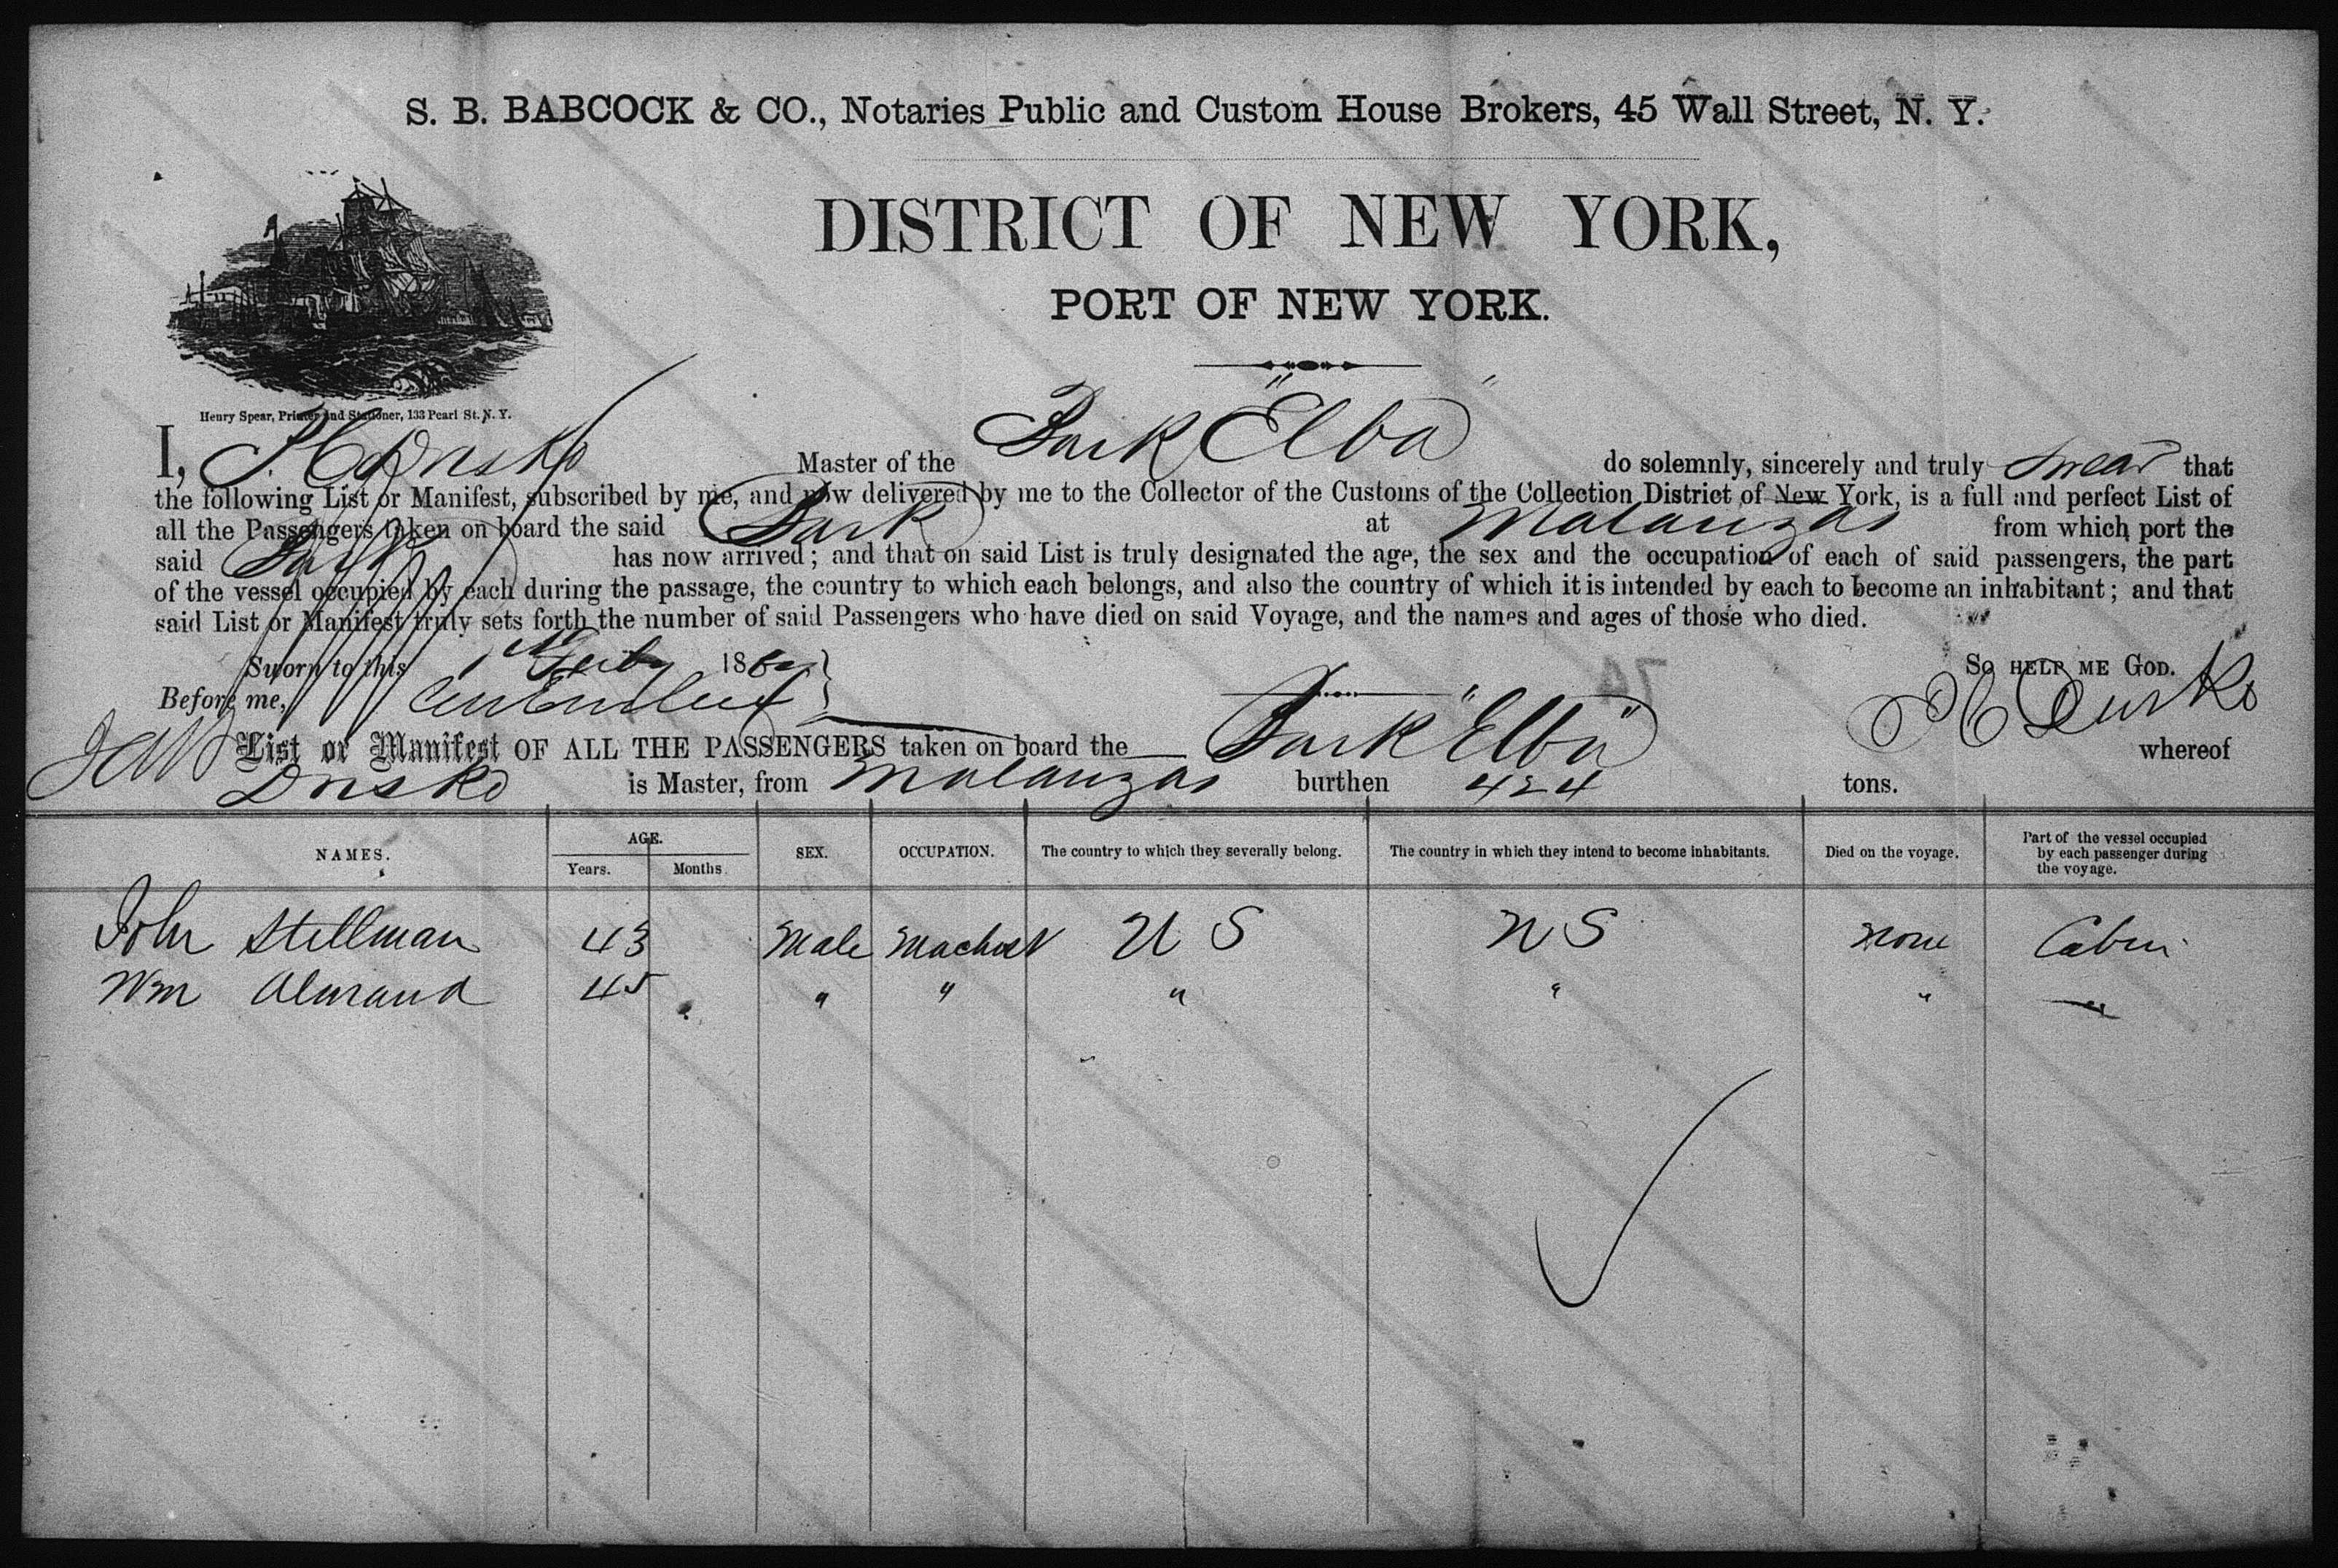 S. B. BABCOCK & CO., Notaries Public and Custom House Brokers, 45 Wall Street, N. Y.
DISTRICT OF NEW YORK,
PORT OF NEW YORK.
Henry Spear, Printer and Stationer, 133 Pearl St. N. Y.
I, Drisko Master of the Bark "Elba" do solemnly, sincerely and truly swear that
the following List or Manifest, subscribed by me, and now delivered by me to the Collector of the Customs of the Collection District of New York, is a full and perfect List of
all the Passengers taken on board the said Bark at Matanzas from which port the
said Bark has now arrived; and that on said List is truly designated the age, the sex and the occupation of each of said passengers, the part
of the vessel occupied by each during the passage, the country to which each belongs, and also the country of which it is intended by each to become an inhabitant; and that
said List or Manifest truly sets forth the number of said Passengers who have died on said Voyage, and the names and ages of those who died.
Sworn to this 18 So HELP ME GOD.
Before me,
List or Manifest OF ALL THE PASSENGERS taken on board the Bark "Elba" whereof
Drisko is Master, from Matanzas burthen 424 tons.
NAMES. AGE. Years. Months. SEX. OCCUPATION. The country to which they severally belong. The country in which they intend to become inhabitants. Died on the voyage. Part of the vessel occupied by each passenger during the voyage.
John Stellman 43 Male Machist U S U S none Cabin
Wm Almrand 45 " " " " " "